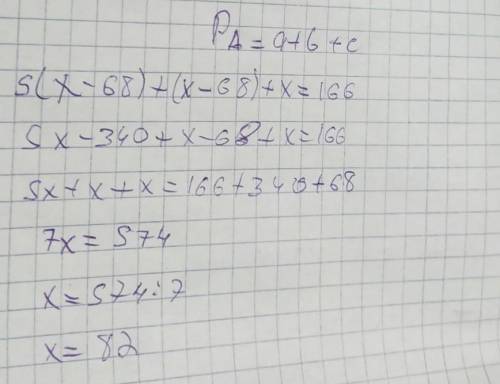 P_Δ = a+b+c
5(x-68)+(x-68)+x=166
5x-340+x-68+x=166
5x+x+x=166+340+68
7x=574
x=574:7
x=82